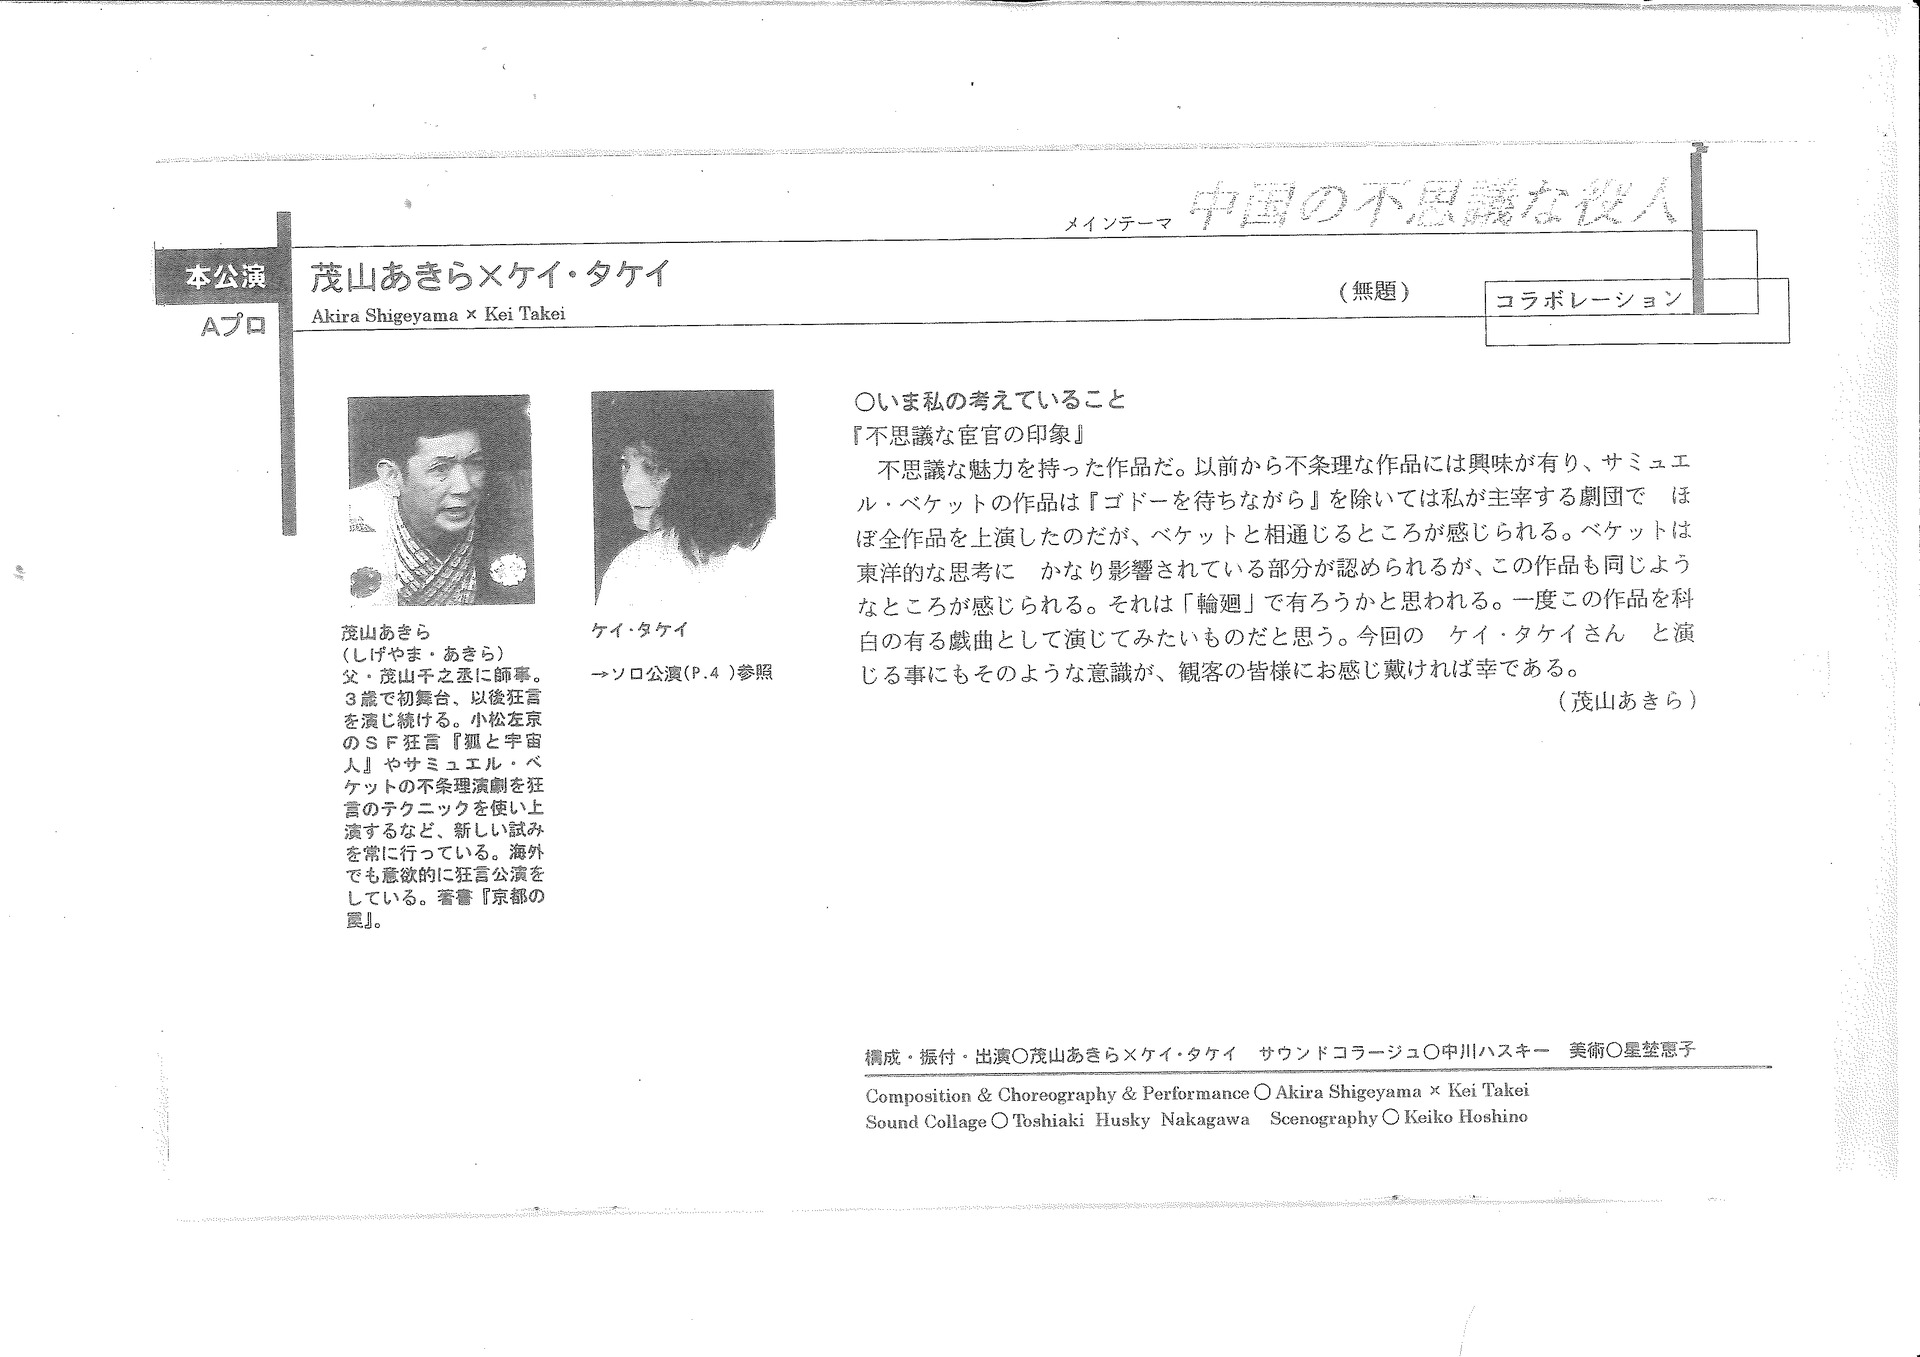 メインテーマ 中国の不思議な役人
本公演
Aプロ
茂山あきら×ケイ・タケイ
Akira Shigeyama × Kei Takei
(無題)
コラボレーション
茂山あきら
(しげやま・あきら)
父・茂山千之丞に師事。
3歳で初舞台、以後狂言
を演じ続ける。小松左京
のSF狂言『狐と宇宙
人』やサミュエル・ベ
ケットの不条理演劇を狂
言のテクニックを使い上
演するなど、新しい試み
を常に行っている。海外
でも意欲的に狂言公演を
している。著書『京都の
罠』。
ケイ・タケイ
→ソロ公演(P.4 )参照
〇いま私の考えていること
『不思議な宦官の印象』
　不思議な魅力を持った作品だ。以前から不条理な作品には興味が有り、サミュエ
ル・ベケットの作品は『ゴドーを待ちながら』を除いては私が主宰する劇団で　ほ
ぼ全作品を上演したのだが、ベケットと相通じるところが感じられる。ベケットは
東洋的な思考に　かなり影響されている部分が認められるが、この作品も同じよう
なところが感じられる。それは「輪廻」で有ろうかと思われる。一度この作品を科
白の有る戯曲として演じてみたいものだと思う。今回の　ケイ・タケイさん　と演
じる事にもそのような意識が、観客の皆様にお感じ戴ければ幸である。
(茂山あきら)
構成・振付・出演〇茂山あきら×ケイ・タケイ　サウンドコラージュ〇中川ハスキー　美術〇星埜恵子
Composition & Choreography & Performance〇Akira Shigeyama × Kei Takei
Sound Collage〇Toshiaki Husky Nakagawa　Scenography〇Keiko Hoshino